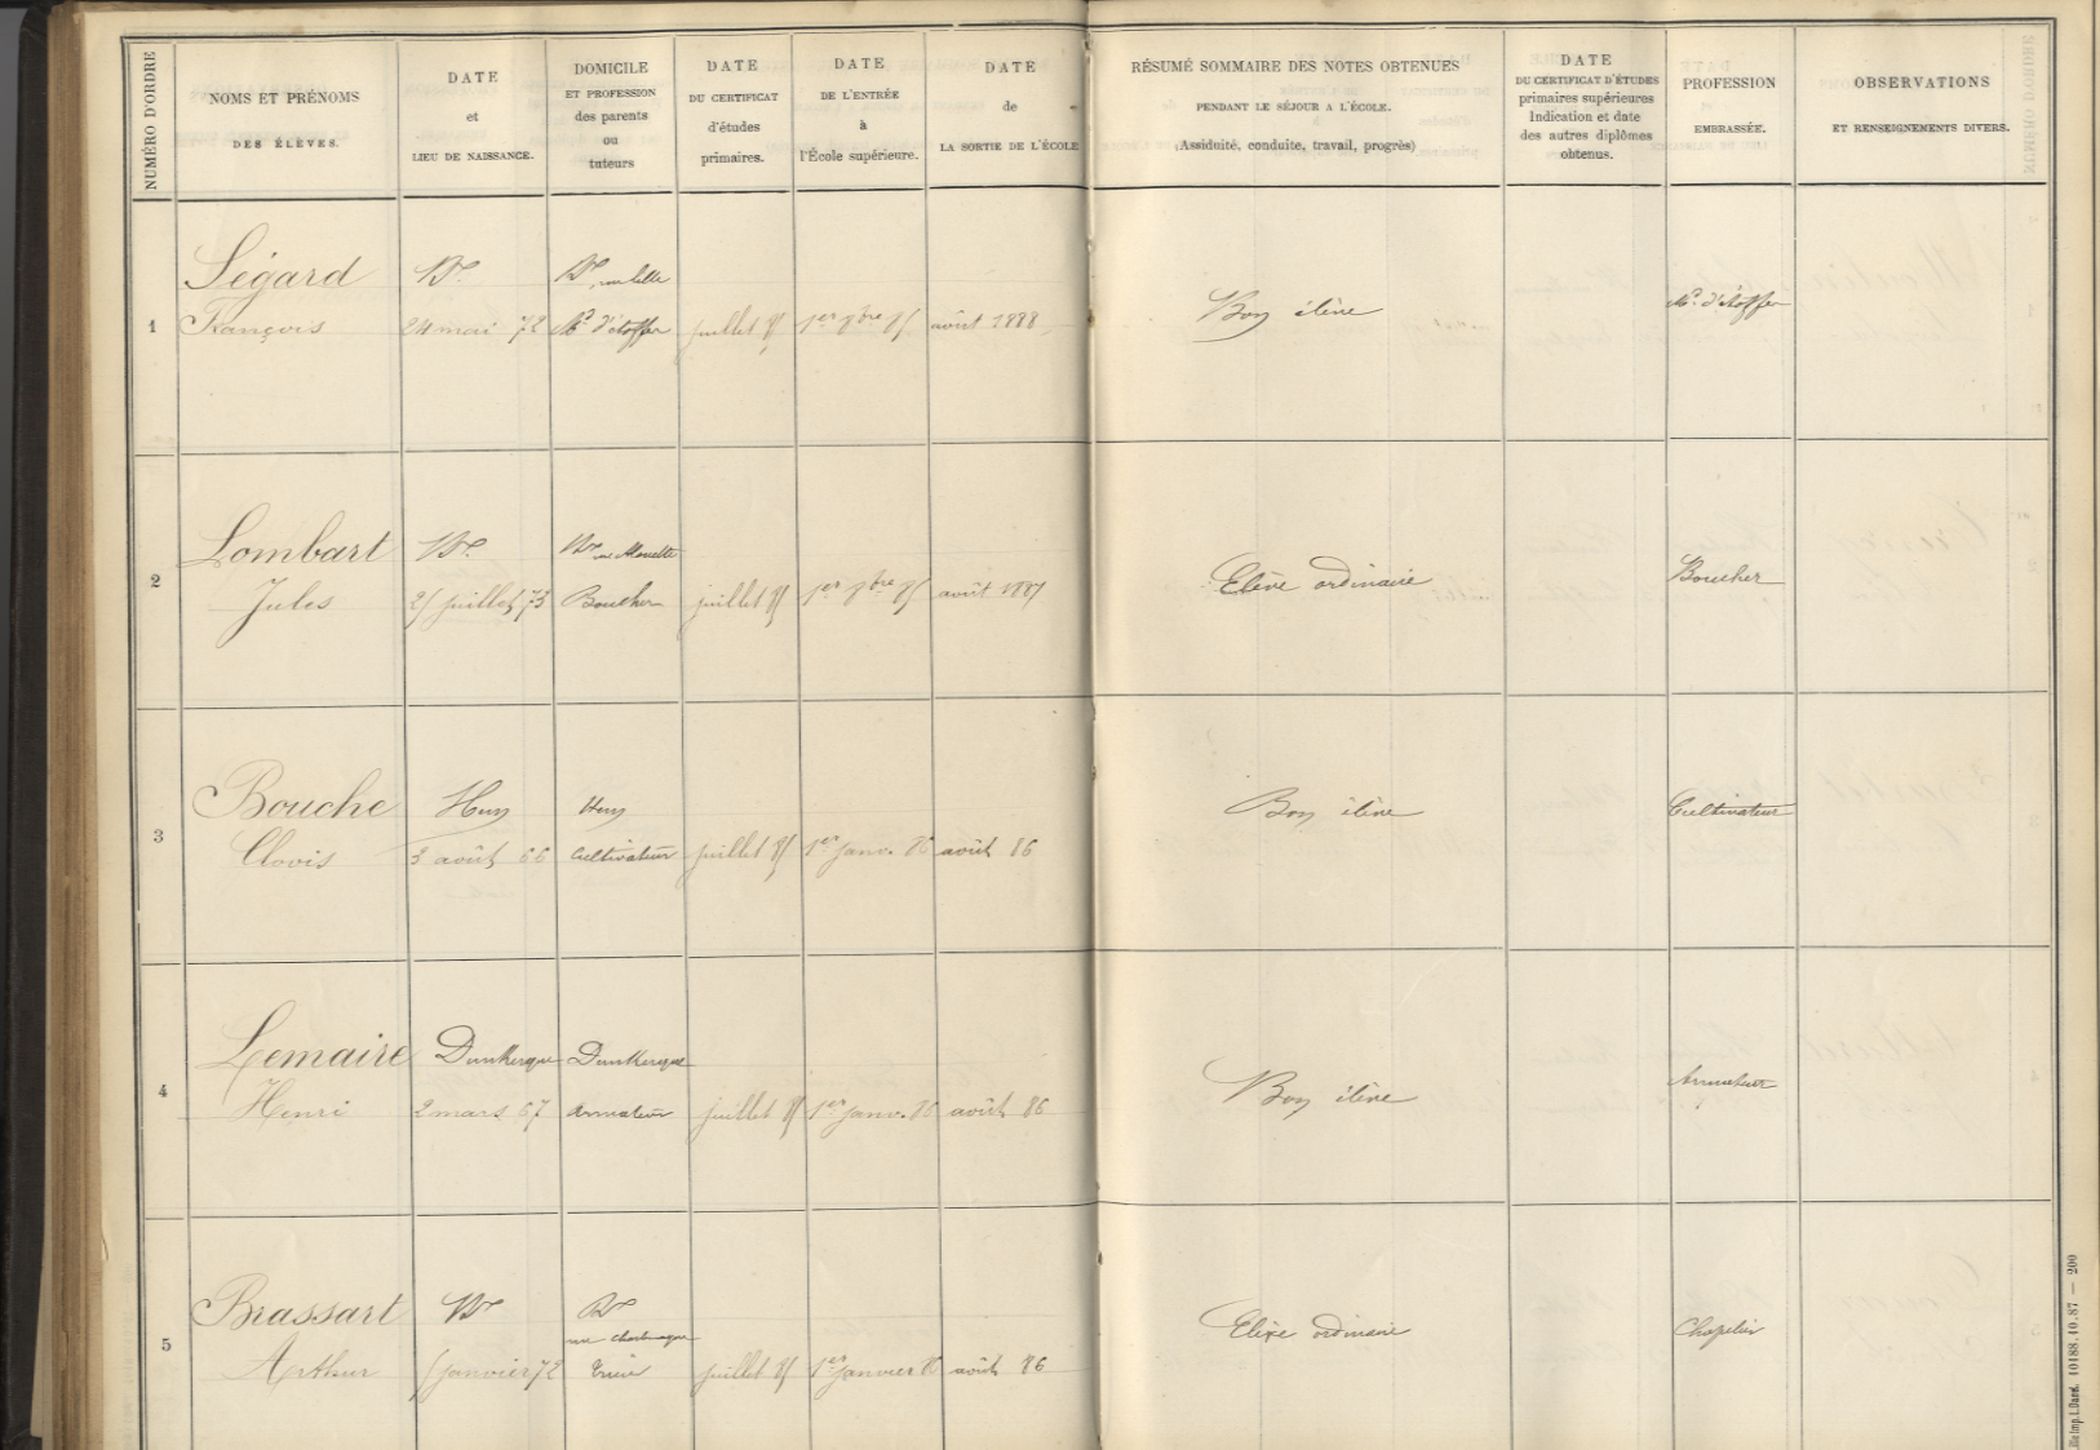 NUMÉRO D'ORDRE
NOMS ET PRÉNOMS
DES ÉLÈVES.
DATE
et
LIEU DE NAISSANCE.
DOMICILE
ET PROFESSION
des parents
ou
tuteurs
DATE
DU CERTIFICAT
d'études
primaires.
DATE
DE L'ENTRÉE
à
l'École supérieure.
DATE
de
LA SORTIE DE L'ÉCOLE
RÉSUMÉ SOMMAIRE DES NOTES OBTENUES
PENDANT LE SÉJOUR A L'ÉCOLE.
(Assiduité, conduite, travail, progrès)
DATE
DU CERTIFICAT D'ÉTUDES
primaires supérieures
Indication et date
des autres diplômes
obtenus.
PROFESSION
EMBRASSÉE.
OBSERVATIONS
ET RENSEIGNEMENTS DIVERS.
1
Ségard
François
24 mai 72
Md d'étoffes
juillet 85
1er 8bre 85
août 1888
Bon élève
Md d'étoffes
2
Lombart
Jules
25 juillet 73
Boucher
juillet 85
1er 8bre 85
août 1887
Elève ordinaire
Boucher
3
Bouche
Clovis
Hem
3 août 66
Hem
Cultivateur
juillet 85
1er janv. 86
août 86
Bon élève
Cultivateur
4
Lemaire
Henri
Dunkerque
2 mars 67
Dunkerque
Armateur
juillet 85
1er janv. 86
août 86
Bon élève
Armateur
5
Brassart
Arthur
5 janvier 72
rue Charlemagne
juillet 85
1er janvier 86
août 86
Elève ordinaire
Chapelier
10188.10.87 — 200